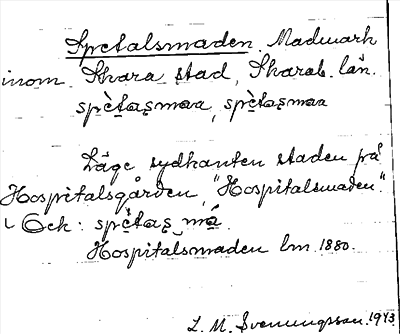 Spetalsmaden. Madmark
inom Skara stad, Skarab. län.
spètasmaa, spètasmaa
Läge sydkanten staden på
Hospitalsgården, "Hospitalsmaden".
Ock: spètas må.
Hospitalsmaden lm. 1880.
L. M. Svenungsson. 1943